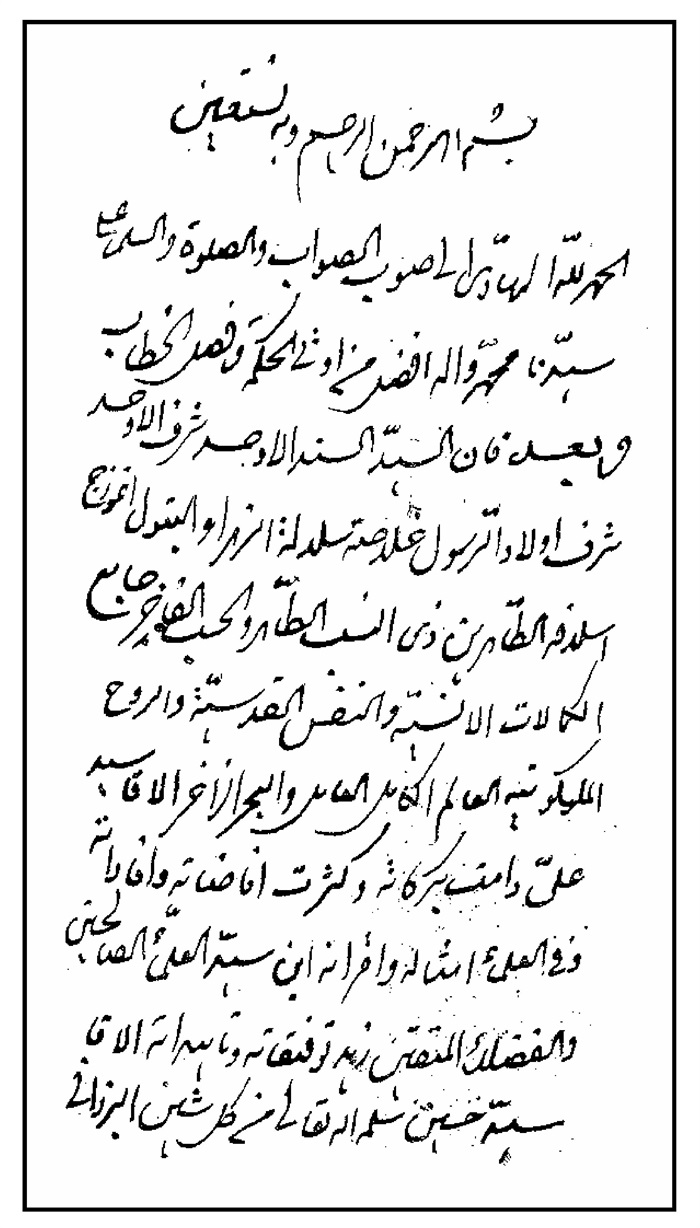 بسم الله الرحمن الرحيم وبه نستعين
الحمد لله الهادی الی صوب الصواب والصلوة والسلام علی
سيّدنا محمّد واله افضل من اوتی الحکمة وفصل الخطاب
وبعد فان السيّد السند الاوحد شرف الاوحد
شرف اولاد الرسول خلاصة سلالة الزهراء والبتول انموذج
اسلافه الطّاهرين ذی النسب الطّاهر والحسب الفاخر جامع
الکمالات الانسيّة والنفس القدسيّة والروح
الملکوتية العالم الکامل العامل والبحر الزاخر الاقا سيد
علیّ دامت برکاته وکثرت افاضاته وافاداته
وفی العلماء امثاله واقرانه ابن سيّد العلماء الصالحين
والفضلاء المتقين زيد توفيقاته وتاييداته الاقا
سيّد حسين سلمه الله تعالی من کل شين اليزدانی